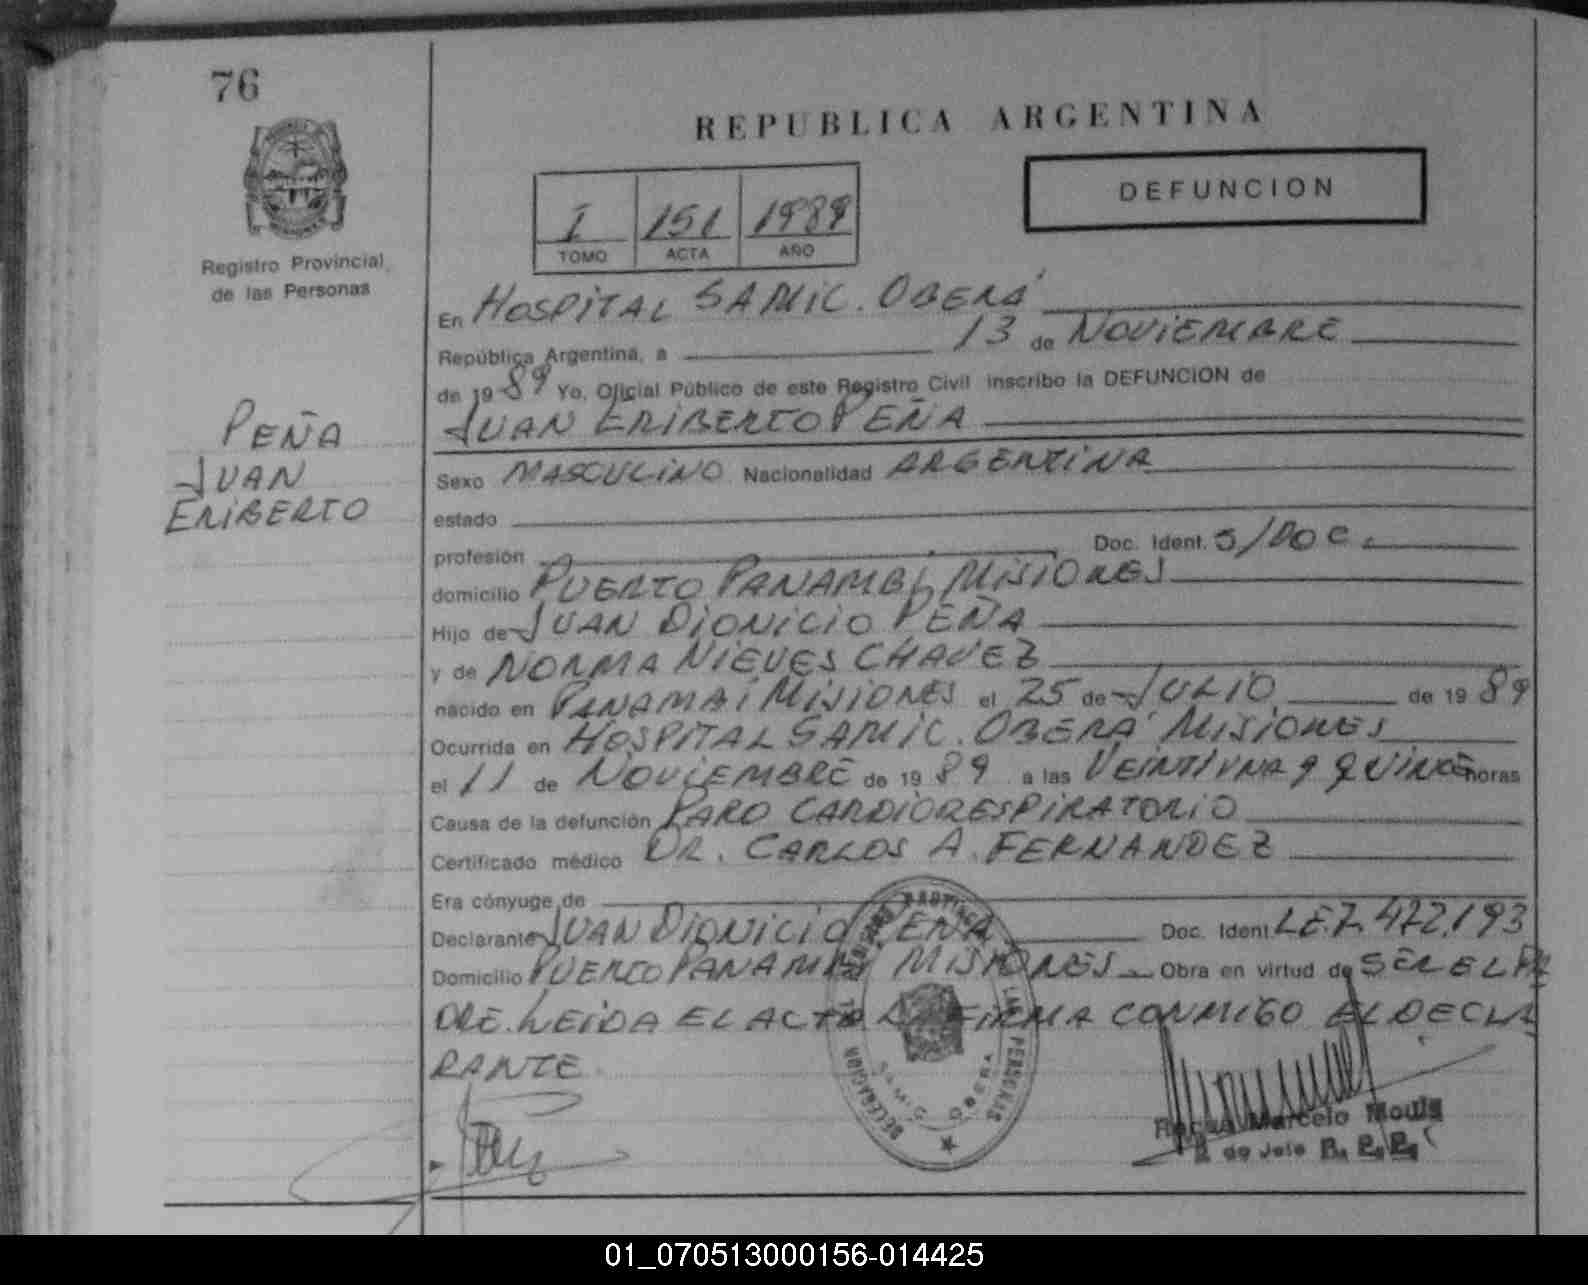 76
REPUBLICA ARGENTINA
DEFUNCION
I 151 1989
TOMO ACTA AÑO
Registro Provincial
de las Personas
En HOSPITAL SAMIC. OBERÁ
República Argentina, a 13 de NOVIEMBRE
de 1989 Yo, Oficial Público de este Registro Civil inscribo la DEFUNCION de
JUAN ERIBERTO PEÑA
PEÑA
JUAN
ERIBERTO
Sexo MASCULINO Nacionalidad ARGENTINA
estado
profesión Doc. Ident. S/DOC.
domicilio PUERTO PANAMBI MISIONES
Hijo de JUAN DIONICIO PEÑA
y de NORMA NIEVES CHAVEZ
nacido en PANAMAI MISIONES el 25 de JULIO de 1989
Ocurrida en HOSPITAL SAMIC. OBERÁ MISIONES
el 11 de NOVIEMBRE de 1989 a las VEINTIUNA y QUINCE horas
Causa de la defunción PARO CARDIORESPIRATORIO
Certificado médico DR. CARLOS A. FERNANDEZ
Era cónyuge de
Declarante JUAN DIONICIO PEÑA Doc. Ident. L.E.7.472.193
Domicilio PUERTO PANAMBI MISIONES Obra en virtud de SER EL PA
DRE. LEIDA EL ACTA FIRMA CONMIGO EL DECLA
RANTE
DELEGACION PROVINCIAL LAS PERSONAS
SAMIC OBERA
Marcelo
2 de Jefe R. P. P.
01_070513000156-014425